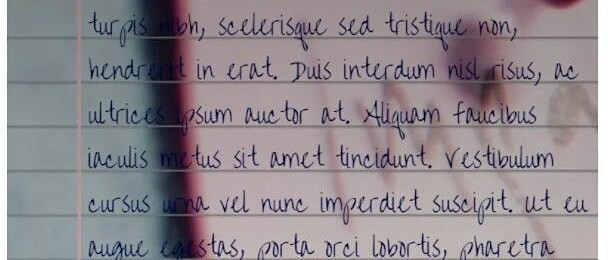 turpis nibh, scelerisque sed tristique non,
hendrerit in erat. Duis interdum nisl risus, ac
ultrices ipsum auctor at. Aliquam faucibus
iaculis metus sit amet tincidunt. Vestibulum
cursus urna vel nunc imperdiet suscipit. Ut eu
augue egestas, porta orci lobortis, pharetra